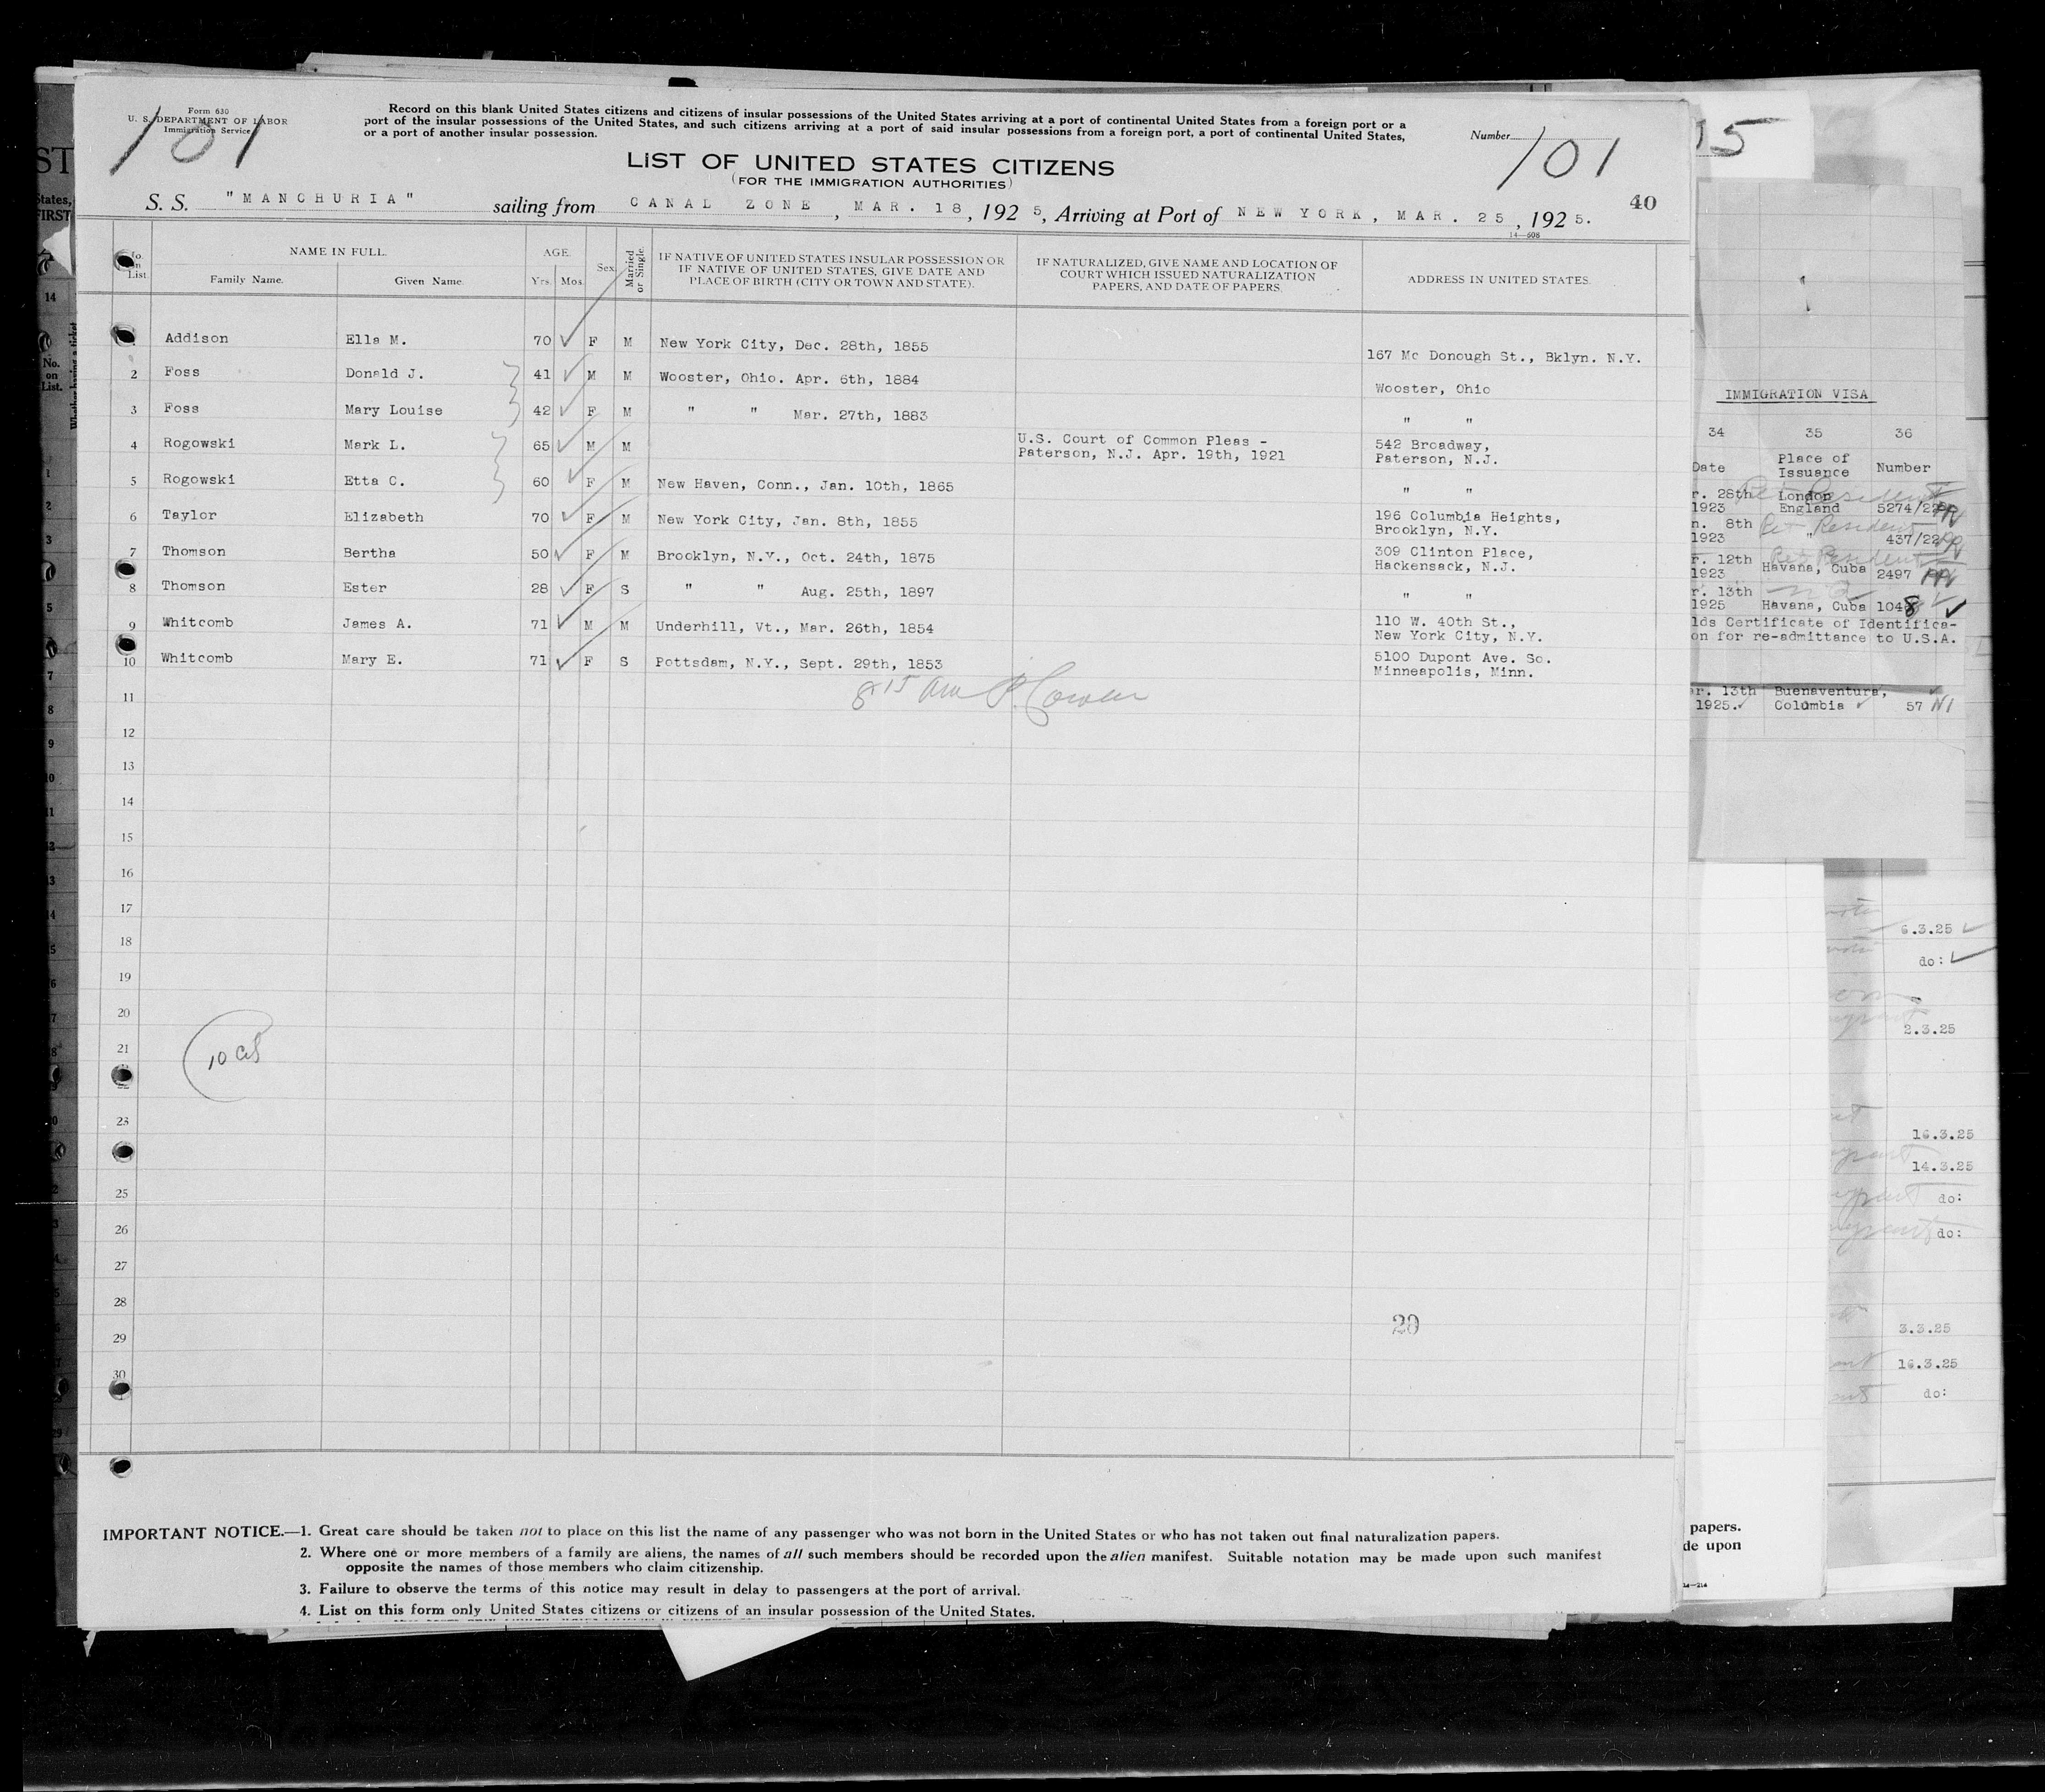 Form 630
U. S. DEPARTMENT OF LABOR
Immigration Service
101
Record on this blank United States citizens and citizens of insular possessions of the United States arriving at a port of continental United States from a foreign port or a
port of the insular possessions of the United States, and such citizens arriving at a port of said insular possessions from a foreign port, a port of continental United States,
or a port of another insular possession.
Number
101
LIST OF UNITED STATES CITIZENS
(FOR THE IMMIGRATION AUTHORITIES)
40
S. S. "MANCHURIA" sailing from CANAL ZONE, MAR. 18, 1925, Arriving at Port of NEW YORK, MAR. 25, 1925.
14-608
No. on List. NAME IN FULL. AGE. Sex Married or Single. IF NATIVE OF UNITED STATES INSULAR POSSESSION OR IF NATIVE OF UNITED STATES, GIVE DATE AND PLACE OF BIRTH (CITY OR TOWN AND STATE). IF NATURALIZED, GIVE NAME AND LOCATION OF COURT WHICH ISSUED NATURALIZATION PAPERS, AND DATE OF PAPERS. ADDRESS IN UNITED STATES.
Family Name. Given Name. Yrs. Mos.
Addison Ella M. 70 F M New York City, Dec. 28th, 1855 167 Mc Donough St., Bklyn. N.Y.
2 Foss Donald J. 41 M M Wooster, Ohio. Apr. 6th, 1884 Wooster, Ohio
3 Foss Mary Louise 42 F M " " Mar. 27th, 1883 " "
4 Rogowski Mark L. 65 M M U.S. Court of Common Pleas - 542 Broadway,
Paterson, N.J. Apr. 19th, 1921 Paterson, N.J.
5 Rogowski Etta C. 60 F M New Haven, Conn., Jan. 10th, 1865 " "
6 Taylor Elizabeth 70 F M New York City, Jan. 8th, 1855 196 Columbia Heights,
Brooklyn, N.Y.
7 Thomson Bertha 50 F M Brooklyn, N.Y., Oct. 24th, 1875 309 Clinton Place,
Hackensack, N.J.
8 Thomson Ester 28 F S " " Aug. 25th, 1897 " "
9 Whitcomb James A. 71 M M Underhill, Vt., Mar. 26th, 1854 110 W. 40th St.,
New York City, N.Y.
10 Whitcomb Mary E. 71 F S Pottsdam, N.Y., Sept. 29th, 1853 5100 Dupont Ave. So.
Minneapolis, Minn.
11 8 15 am
12
13
14
15
16
17
18
19
20
21
22
23
25
26
27
28
29
30
29
IMPORTANT NOTICE.—1. Great care should be taken not to place on this list the name of any passenger who was not born in the United States or who has not taken out final naturalization papers.
2. Where one or more members of a family are aliens, the names of all such members should be recorded upon the alien manifest. Suitable notation may be made upon such manifest
opposite the names of those members who claim citizenship.
3. Failure to observe the terms of this notice may result in delay to passengers at the port of arrival.
4. List on this form only United States citizens or citizens of an insular possession of the United States.
IMMIGRATION VISA
34 35 36
Date Place of Issuance Number
r. 28th London
1923 England 5274/22
n. 8th Ret Resident
1923 " 437/22
r. 12th
1923 Havana, Cuba 2497
r. 13th
1925 Havana, Cuba 1048
lds Certificate of Identifica-
on for re-admittance to U.S.A.
r. 13th Buenaventura,
1925. Columbia 57
6.3.25
do:
2.3.25
16.3.25
14.3.25
do:
do:
3.3.25
16.3.25
do:
papers.
de upon
14-214